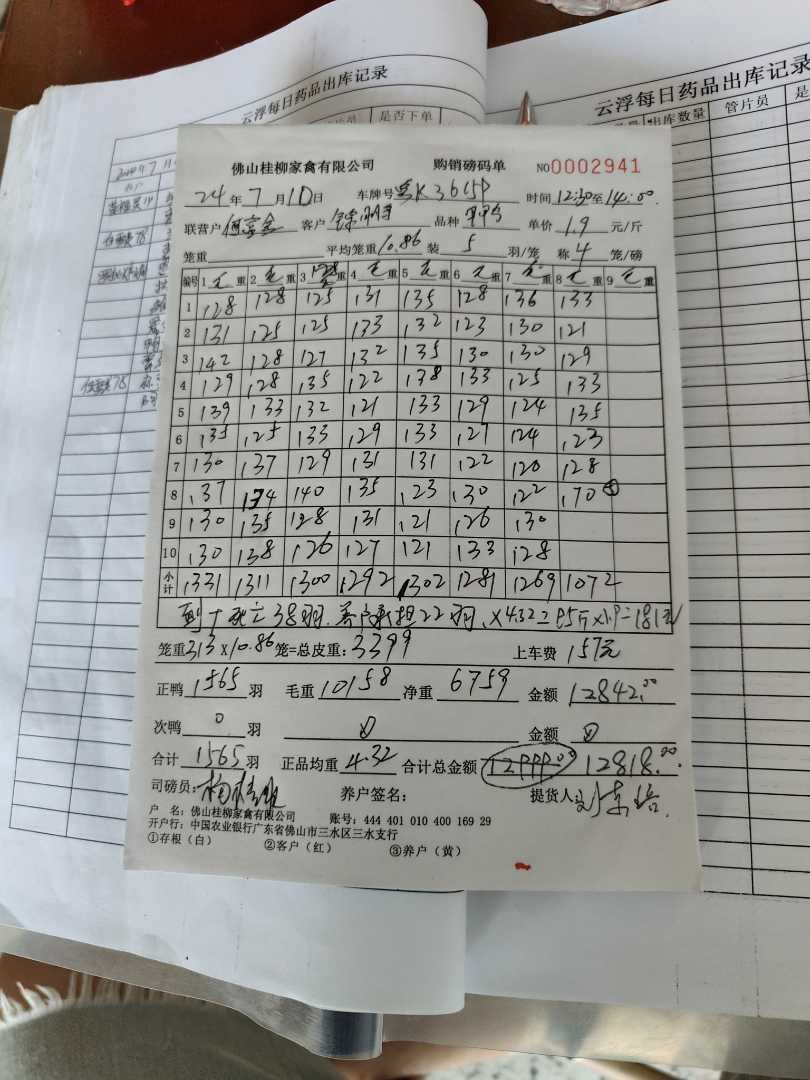 云浮每日药品出库记录
云浮每日药品出库记录
是否下单
出库数量 管片员 是
佛山桂柳家禽有限公司 购销磅码单 NO0002941
24年7月10日 车牌号 K3615P 时间12:30至14:00
联营户 客户 品种 单价1.9元/斤
笼重 平均笼重10.86 装5羽/笼 称4笼/磅
编号 1毛重 2毛重 3毛重 4毛重 5毛重 6毛重 7毛重 8毛重 9毛重
1 128 128 125 131 135 128 136 133
2 131 125 125 133 132 123 130 121
3 142 128 127 132 135 130 130 129
4 129 128 135 122 138 133 125 133
5 139 133 132 121 133 129 124 135
6 135 125 133 129 133 127 124 123
7 130 137 129 131 131 122 120 128
8 137 134 140 135 123 130 122 170⑤
9 130 135 128 131 121 126 130
10 130 138 126 127 121 133 128
小计 1331 1311 1300 1292 1302 1281 1269 1072
到厂死亡38羽.养户承担22羽,×4.32=95斤×1.9=181元
笼重313×10.86笼=总皮重:3399 上车费157元
正鸭1565羽 毛重10158 净重6759 金额12842.00
次鸭0羽 0 金额0
合计1565羽 正品均重4.32 合计总金额12999.00 12818.00
司磅员: 养户签名: 提货人:
户 名:佛山桂柳家禽有限公司 账号:444 401 010 400 169 29
开户行:中国农业银行广东省佛山市三水区三水支行
①存根(白) ②客户(红) ③养户(黄)